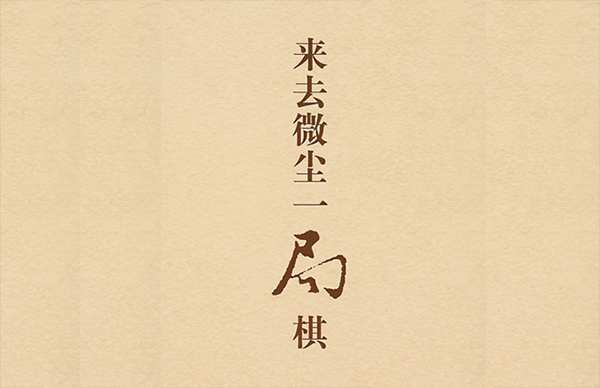 来去微尘一局棋